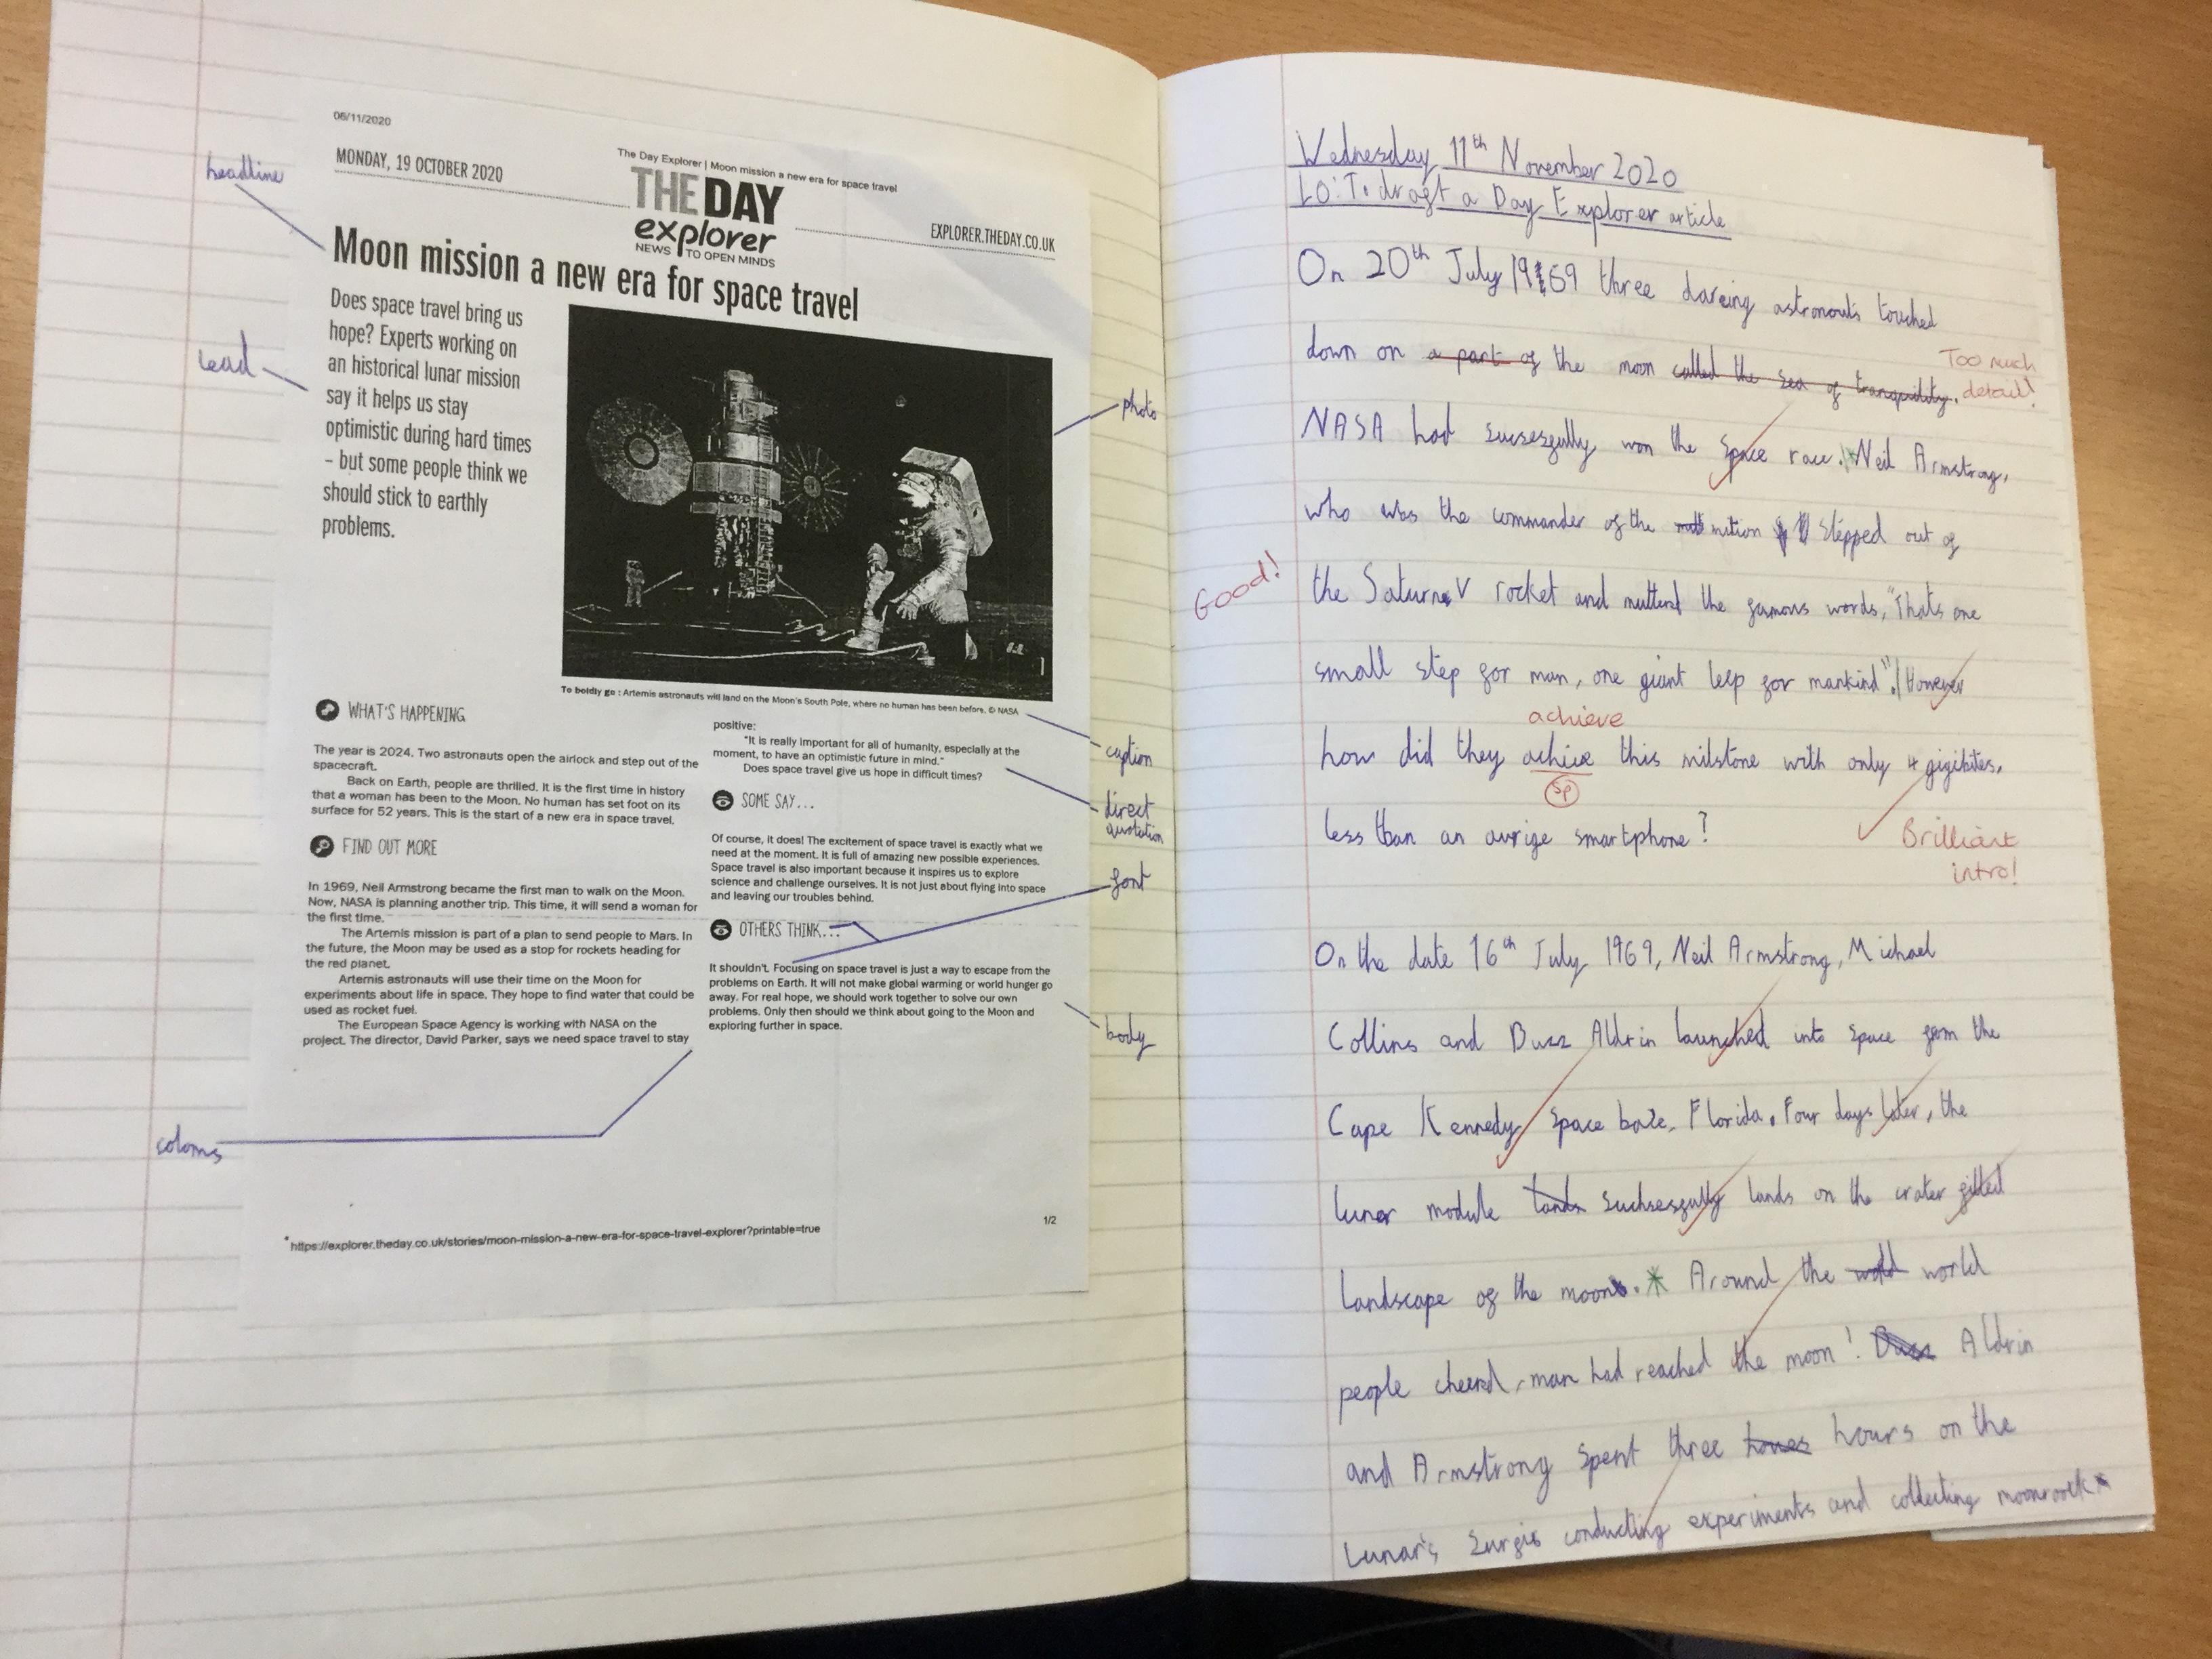 06/11/2020
The Day Explorer | Moon mission a new era for space travel
MONDAY, 19 OCTOBER 2020
THE DAY
explorer
NEWS TO OPEN MINDS
EXPLORER.THEDAY.CO.UK
headline
Moon mission a new era for space travel
Does space travel bring us
hope? Experts working on
an historical lunar mission
say it helps us stay
optimistic during hard times
– but some people think we
should stick to earthly
problems.
Lead
photo
To boldly go : Artemis astronauts will land on the Moon's South Pole, where no human has been before. © NASA
caption
WHAT'S HAPPENING
The year is 2024. Two astronauts open the airlock and step out of the
spacecraft.
Back on Earth, people are thrilled. It is the first time in history
that a woman has been to the Moon. No human has set foot on its
surface for 52 years. This is the start of a new era in space travel.
FIND OUT MORE
In 1969, Neil Armstrong became the first man to walk on the Moon.
Now, NASA is planning another trip. This time, it will send a woman for
the first time.
The Artemis mission is part of a plan to send people to Mars. In
the future, the Moon may be used as a stop for rockets heading for
the red planet.
Artemis astronauts will use their time on the Moon for
experiments about life in space. They hope to find water that could be
used as rocket fuel.
The European Space Agency is working with NASA on the
project. The director, David Parker, says we need space travel to stay
positive:
"It is really important for all of humanity, especially at the
moment, to have an optimistic future in mind."
Does space travel give us hope in difficult times?
direct
quotation
SOME SAY...
Of course, it does! The excitement of space travel is exactly what we
need at the moment. It is full of amazing new possible experiences.
Space travel is also important because it inspires us to explore
science and challenge ourselves. It is not just about flying into space
and leaving our troubles behind.
font
OTHERS THINK...
It shouldn't. Focusing on space travel is just a way to escape from the
problems on Earth. It will not make global warming or world hunger go
away. For real hope, we should work together to solve our own
problems. Only then should we think about going to the Moon and
exploring further in space.
body
coloms
https://explorer.theday.co.uk/stories/moon-mission-a-new-era-for-space-travel-explorer?printable=true
1/2
Wednesday 11th November 2020
LO: To draft a Day Explorer article
On 20th July 1969 three dareing astronauts touched
down on a part of the moon called the Sea of tranquility.
Too much
detail!
NASA had sucsessfully won the Space race. Neil Armstrong,
who was the commander of the mition stepped out of
Good!
the Saturn V rocket and mutterd the famous words, "Thats one
small step for man, one giant leep for mankind". However
achieve
how did they achive this milstone with only 4 gigibites,
sp
less than an avrige smartphone?
Brilliant
intro!
On the date 16th July 1969, Neil Armstrong, Michael
Collins and Buzz Aldrin launched into space from the
Cape Kennedy Space base, Florida. Four days later, the
luner module lands suchsessfully lands on the crater filled
landscape of the moon. * Around the world
people cheered, man had reached the moon! Buzz Aldrin
and Armstrong spent three hours on the
Lunar's surfis conducting experiments and collecting moonrock